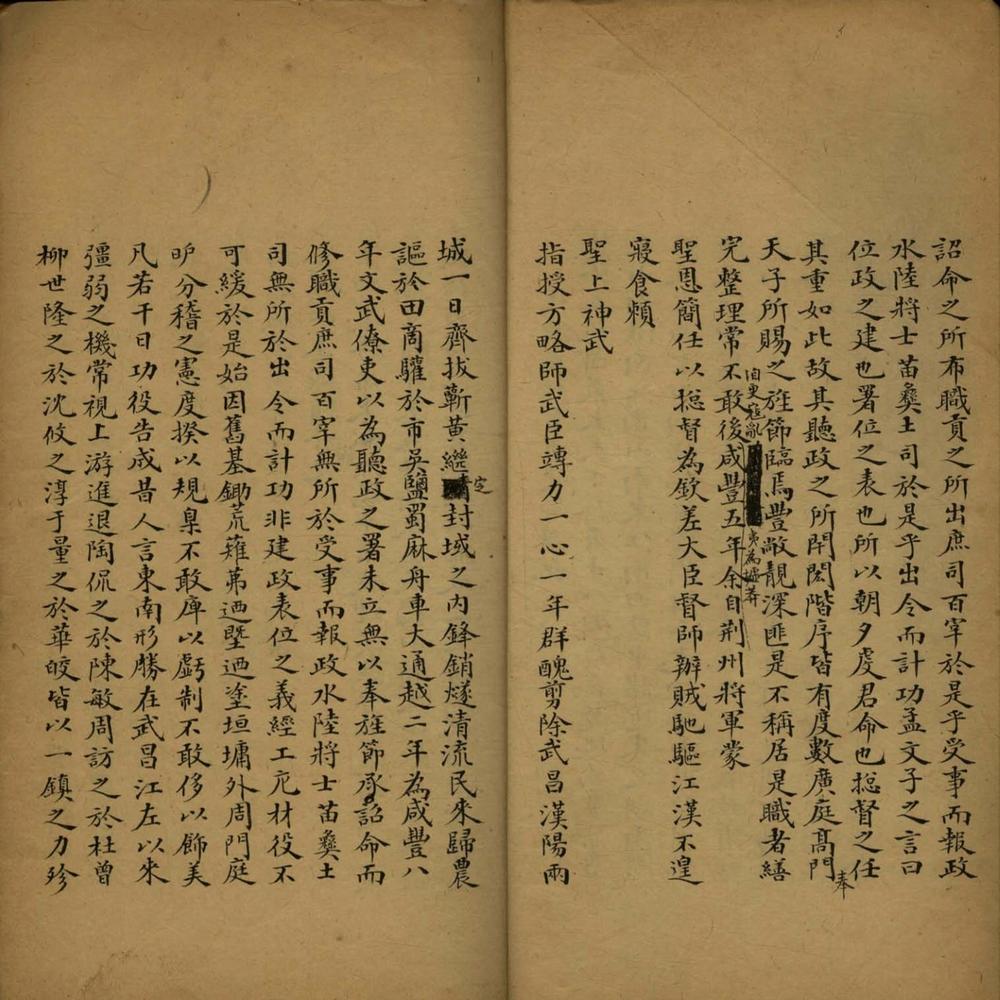 詔命之所布職貢之所出庶司百宰於是乎受事而報政
水陸將士苗彝土司於是乎出令而計功孟文子之言曰
位政之建也署位之表也所以朝夕虔君命也捴督之任
其重如此故其聽政之所閈閎階序皆有度數廣庭高門
奉
天子所賜之旌節臨焉豐敞靚深匪是不稱居是職者繕
完整理常不敢後咸豐五年余自荆州將軍蒙
自更寇亂
夷為墟莽
聖恩簡任以捴督為欽差大臣督師辦賊馳驅江漢不遑
寢食頼
聖上神武
指授方略師武臣竱力一心一年群醜剪除武昌漢陽兩
城一日齊拔蘄黃繼封域之內鋒銷燧清流民來歸農
定
謳於田商驩於市吳鹽蜀麻舟車大通越二年為咸豐八
年文武僚吏以為聽政之署未立無以奉旌節承詔命而
修職貢庶司百宰無所於受事而報政水陸將士苗彝土
司無所於出令而計功非建政表位之義經工庀材役不
可緩於是始因舊基鋤荒薙茀迺塈迺塗垣墉外周門庭
昈分稽之憲度揆以規臬不敢庳以虧制不敢侈以飾美
凡若干日功役告成昔人言東南形勝在武昌江左以來
彊弱之機常視上游進退陶侃之於陳敏周訪之於杜曾
柳世隆之於沈攸之淳于量之於華皎皆以一鎮之力珍